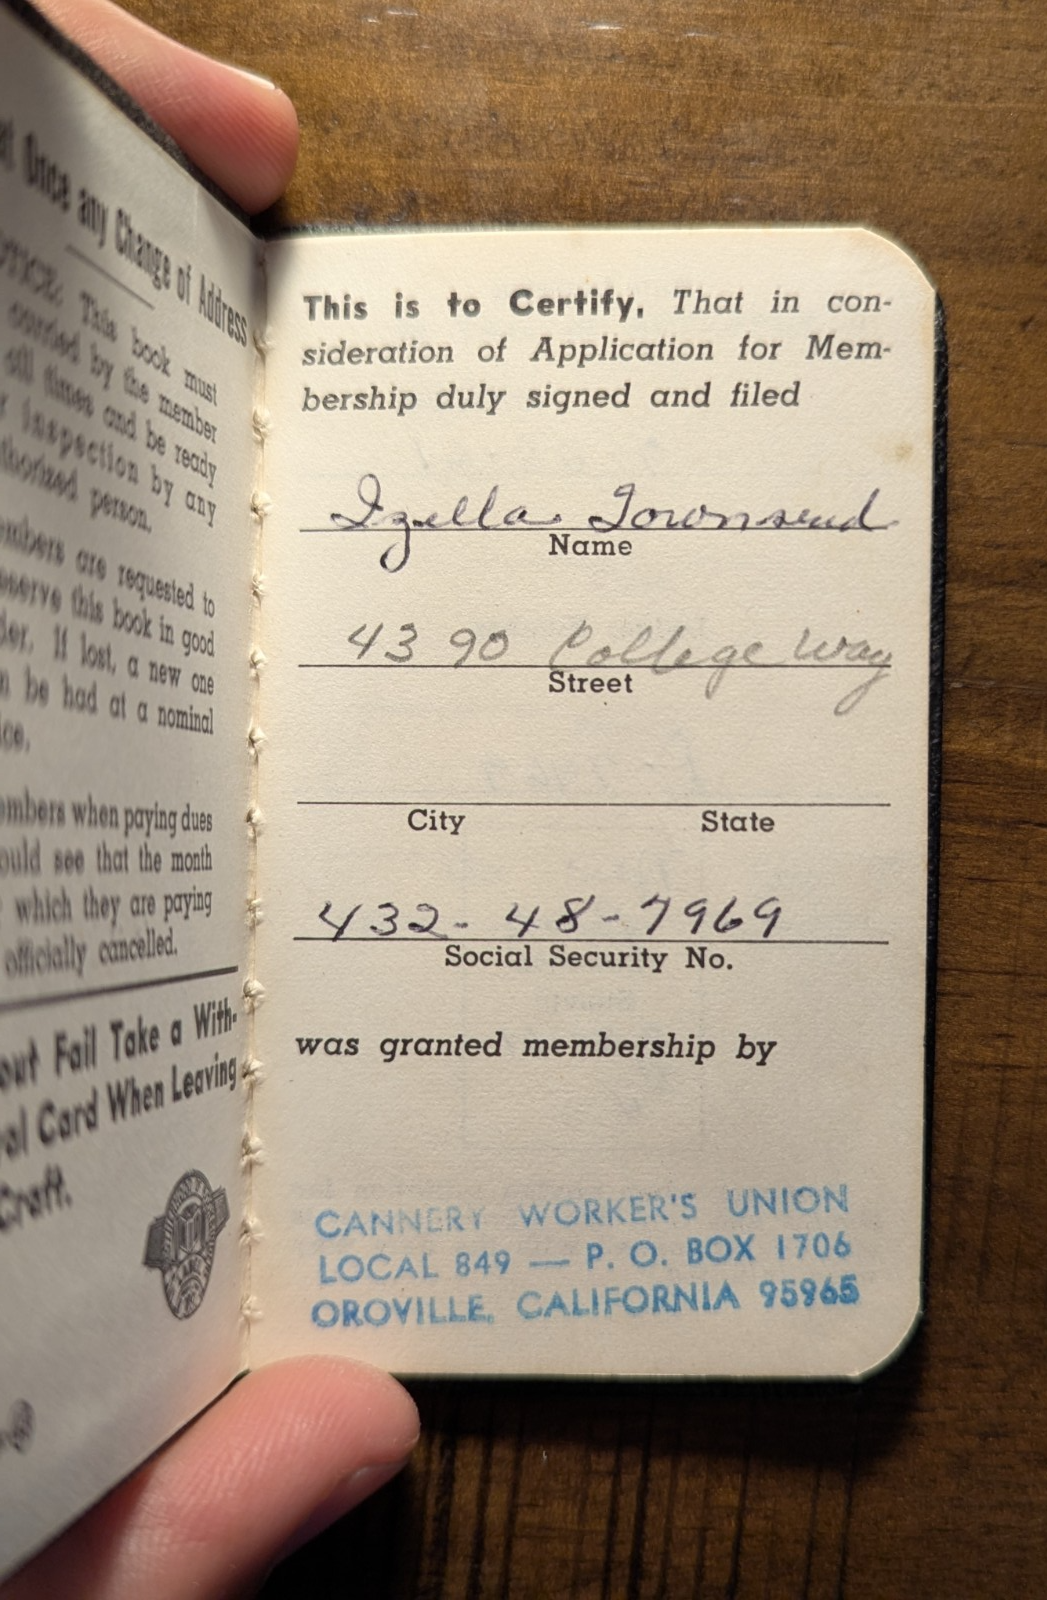 at Once any Change of Address
NOTICE: This book must
carried by the member
all times and be ready
inspection by any
authorized person.
are requested to
this book in good
If lost, a new one
be had at a nominal
when paying dues
see that the month
which they are paying
officially cancelled.
Fail Take a With-
Card When Leaving
Craft.
This is to Certify, That in con-
sideration of Application for Mem-
bership duly signed and filed
Izella Townsend
Name
4390 College Way
Street
City State
432-48-7969
Social Security No.
was granted membership by
CANNERY WORKER'S UNION
LOCAL 849 — P. O. BOX 1706
OROVILLE, CALIFORNIA 95965